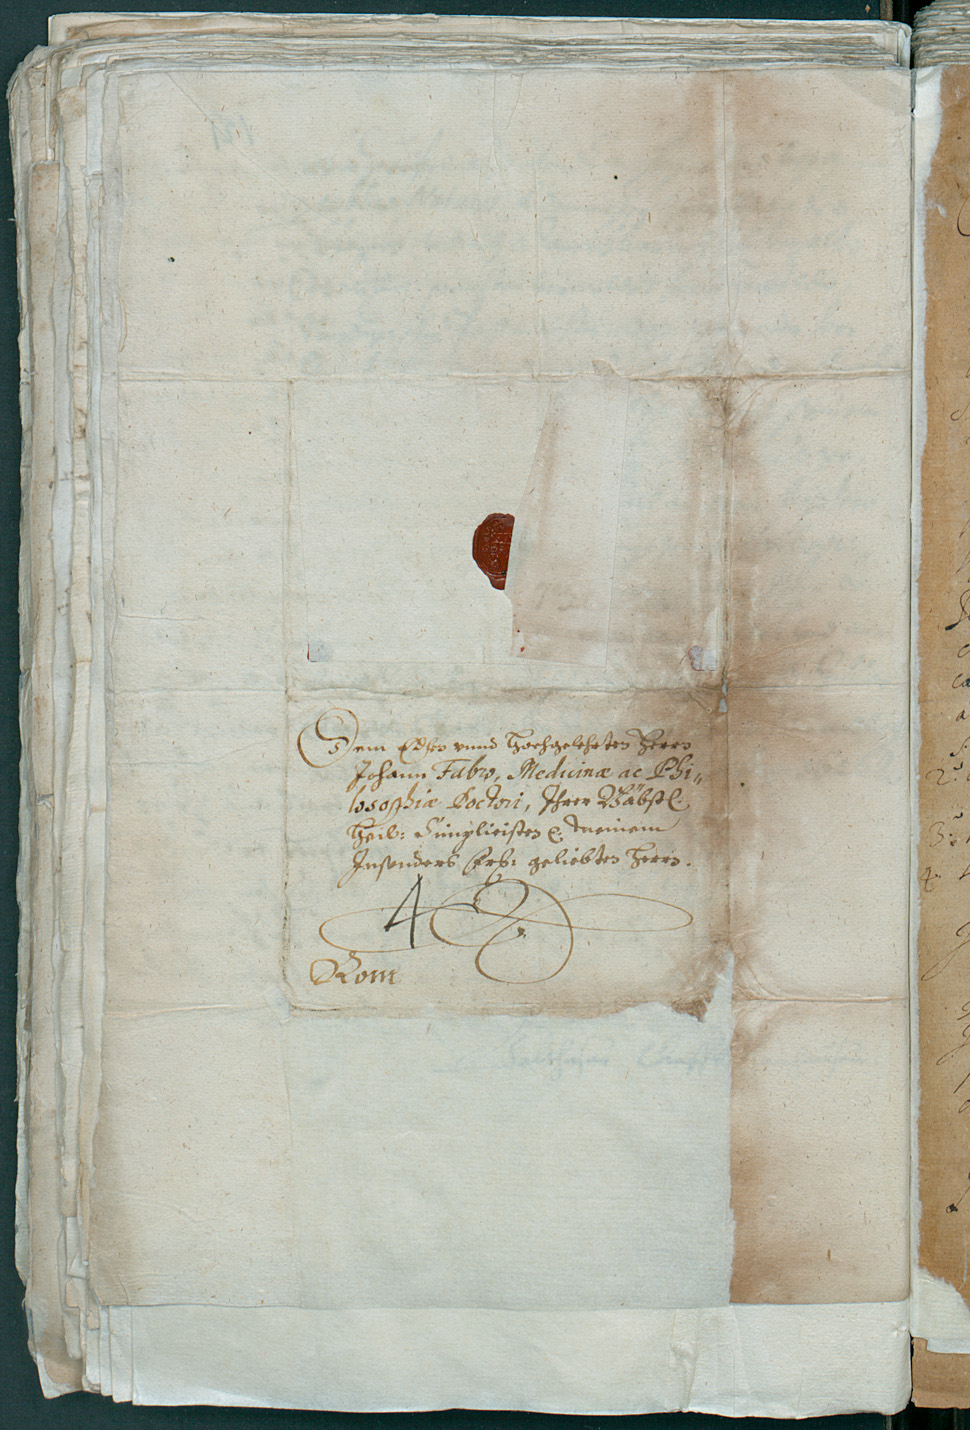 Dem Edlen vnnd Hochgelehrten Herrn
Johann Fabro, Medicinæ ac Phi„
losophiæ Doctori, Ihrer Bäbstl.
Heil: Simplicisten &. Meinem
Insonders Ehr: geliebten Herrn.
4
Rom